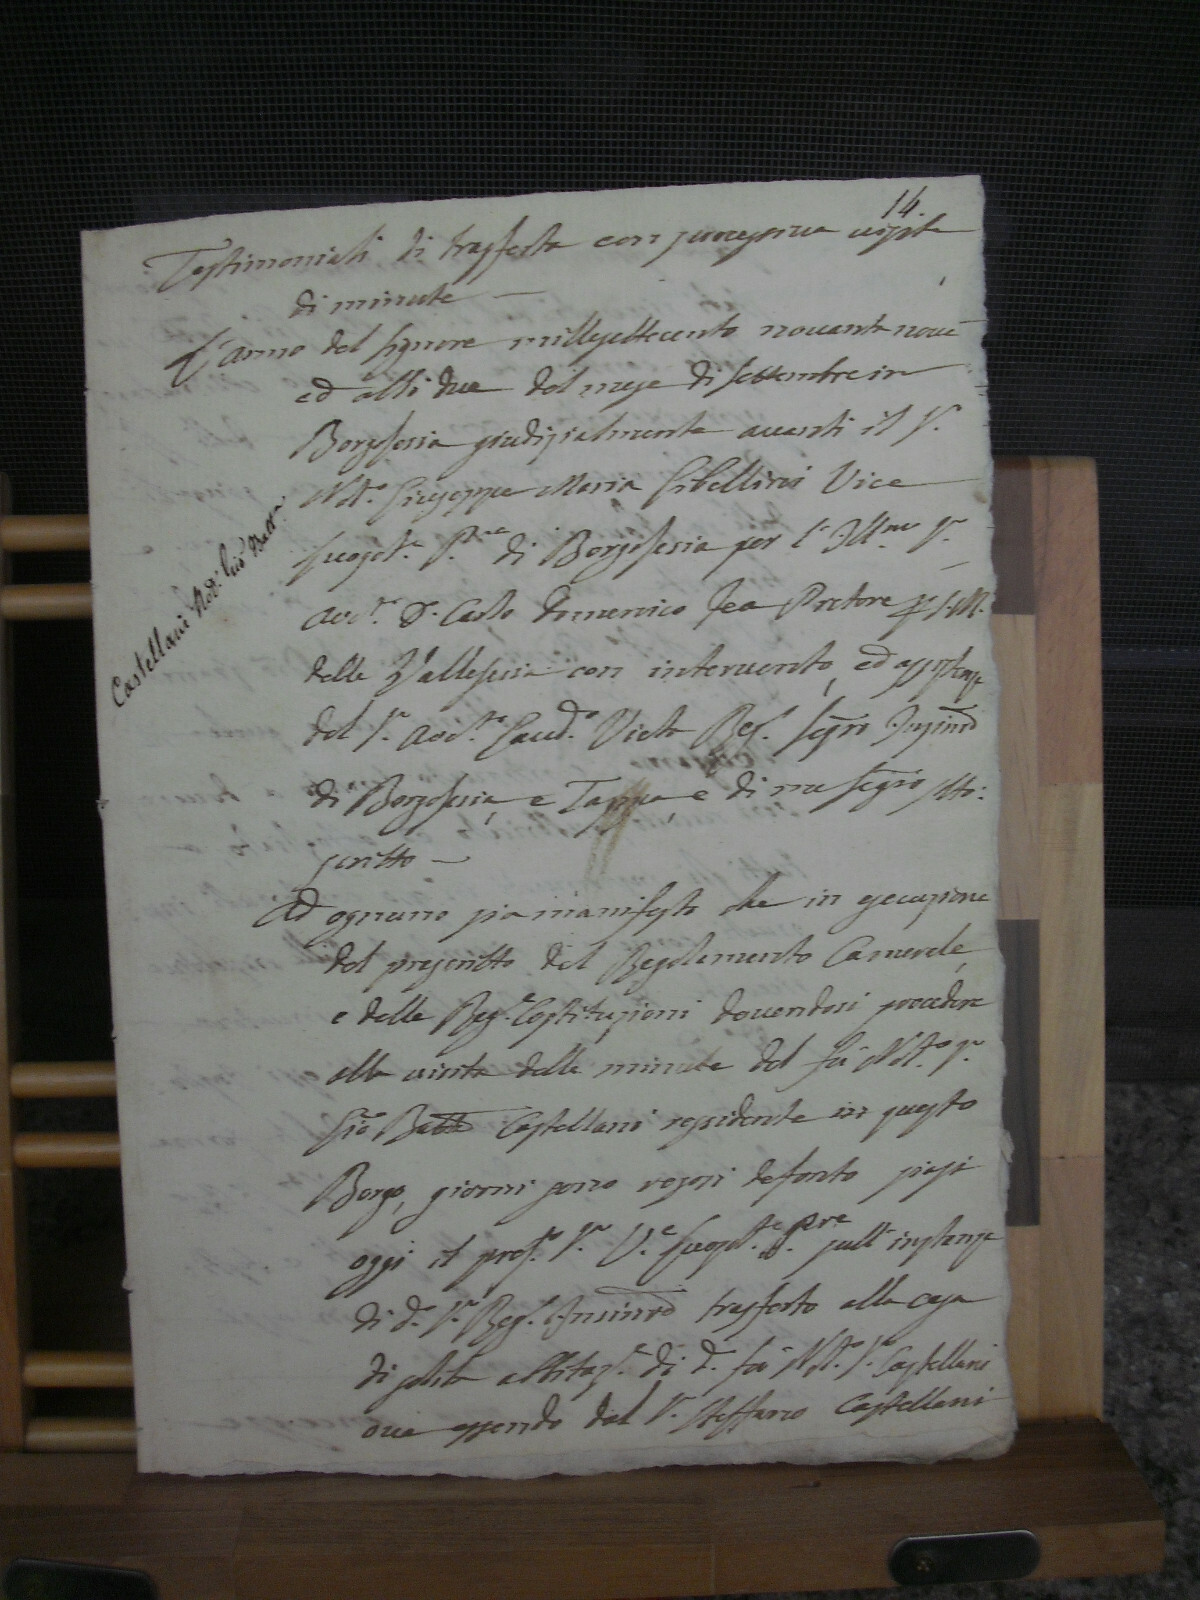 14.
Testimoniali di trasferta con successiva visita
di minute —
L'anno del Signore millesettecento novanta nove
ed alli due del mese di settembre in
Borgosesia giudizialmente avanti il Sr.
Notº. Giuseppe Maria Gibellini Vice
Luogotᵉ. di Borgosesia per l' Illmo Sr.
Avvᵗᵒ. Dn. Carlo Domenico Pretore p S. M.
della Vallesesia con intervento, ed assistenza
del Sr. Avvᵗᵒ. Reg. Segrō Insinrē
di Borgosesia, e Tappa, e di me Segrō sotto:
scritto —
Castellani Not. Gio Battᵃ
Ad ognuno sia manifesto che in esecuzione
del prescritto del Regolamento Camerale,
e delle Reg. Costituzioni dovendosi procedere
alla visita delle minute del fu Notº. Sr.
Gio Batta Castellani residente in questo
Borgo, giorni sono resosi defonto siasi
oggi il prefº. Sr. Vᵉ. Luogotᵉ. Pre sull' instanza
di dº. Sr. Reg. Insinrē trasferto alla casa
di solita abitazᵉ. di dº. fu Notº. Sr. Castellani
ove essendo dal Sr. Steffano Castellani